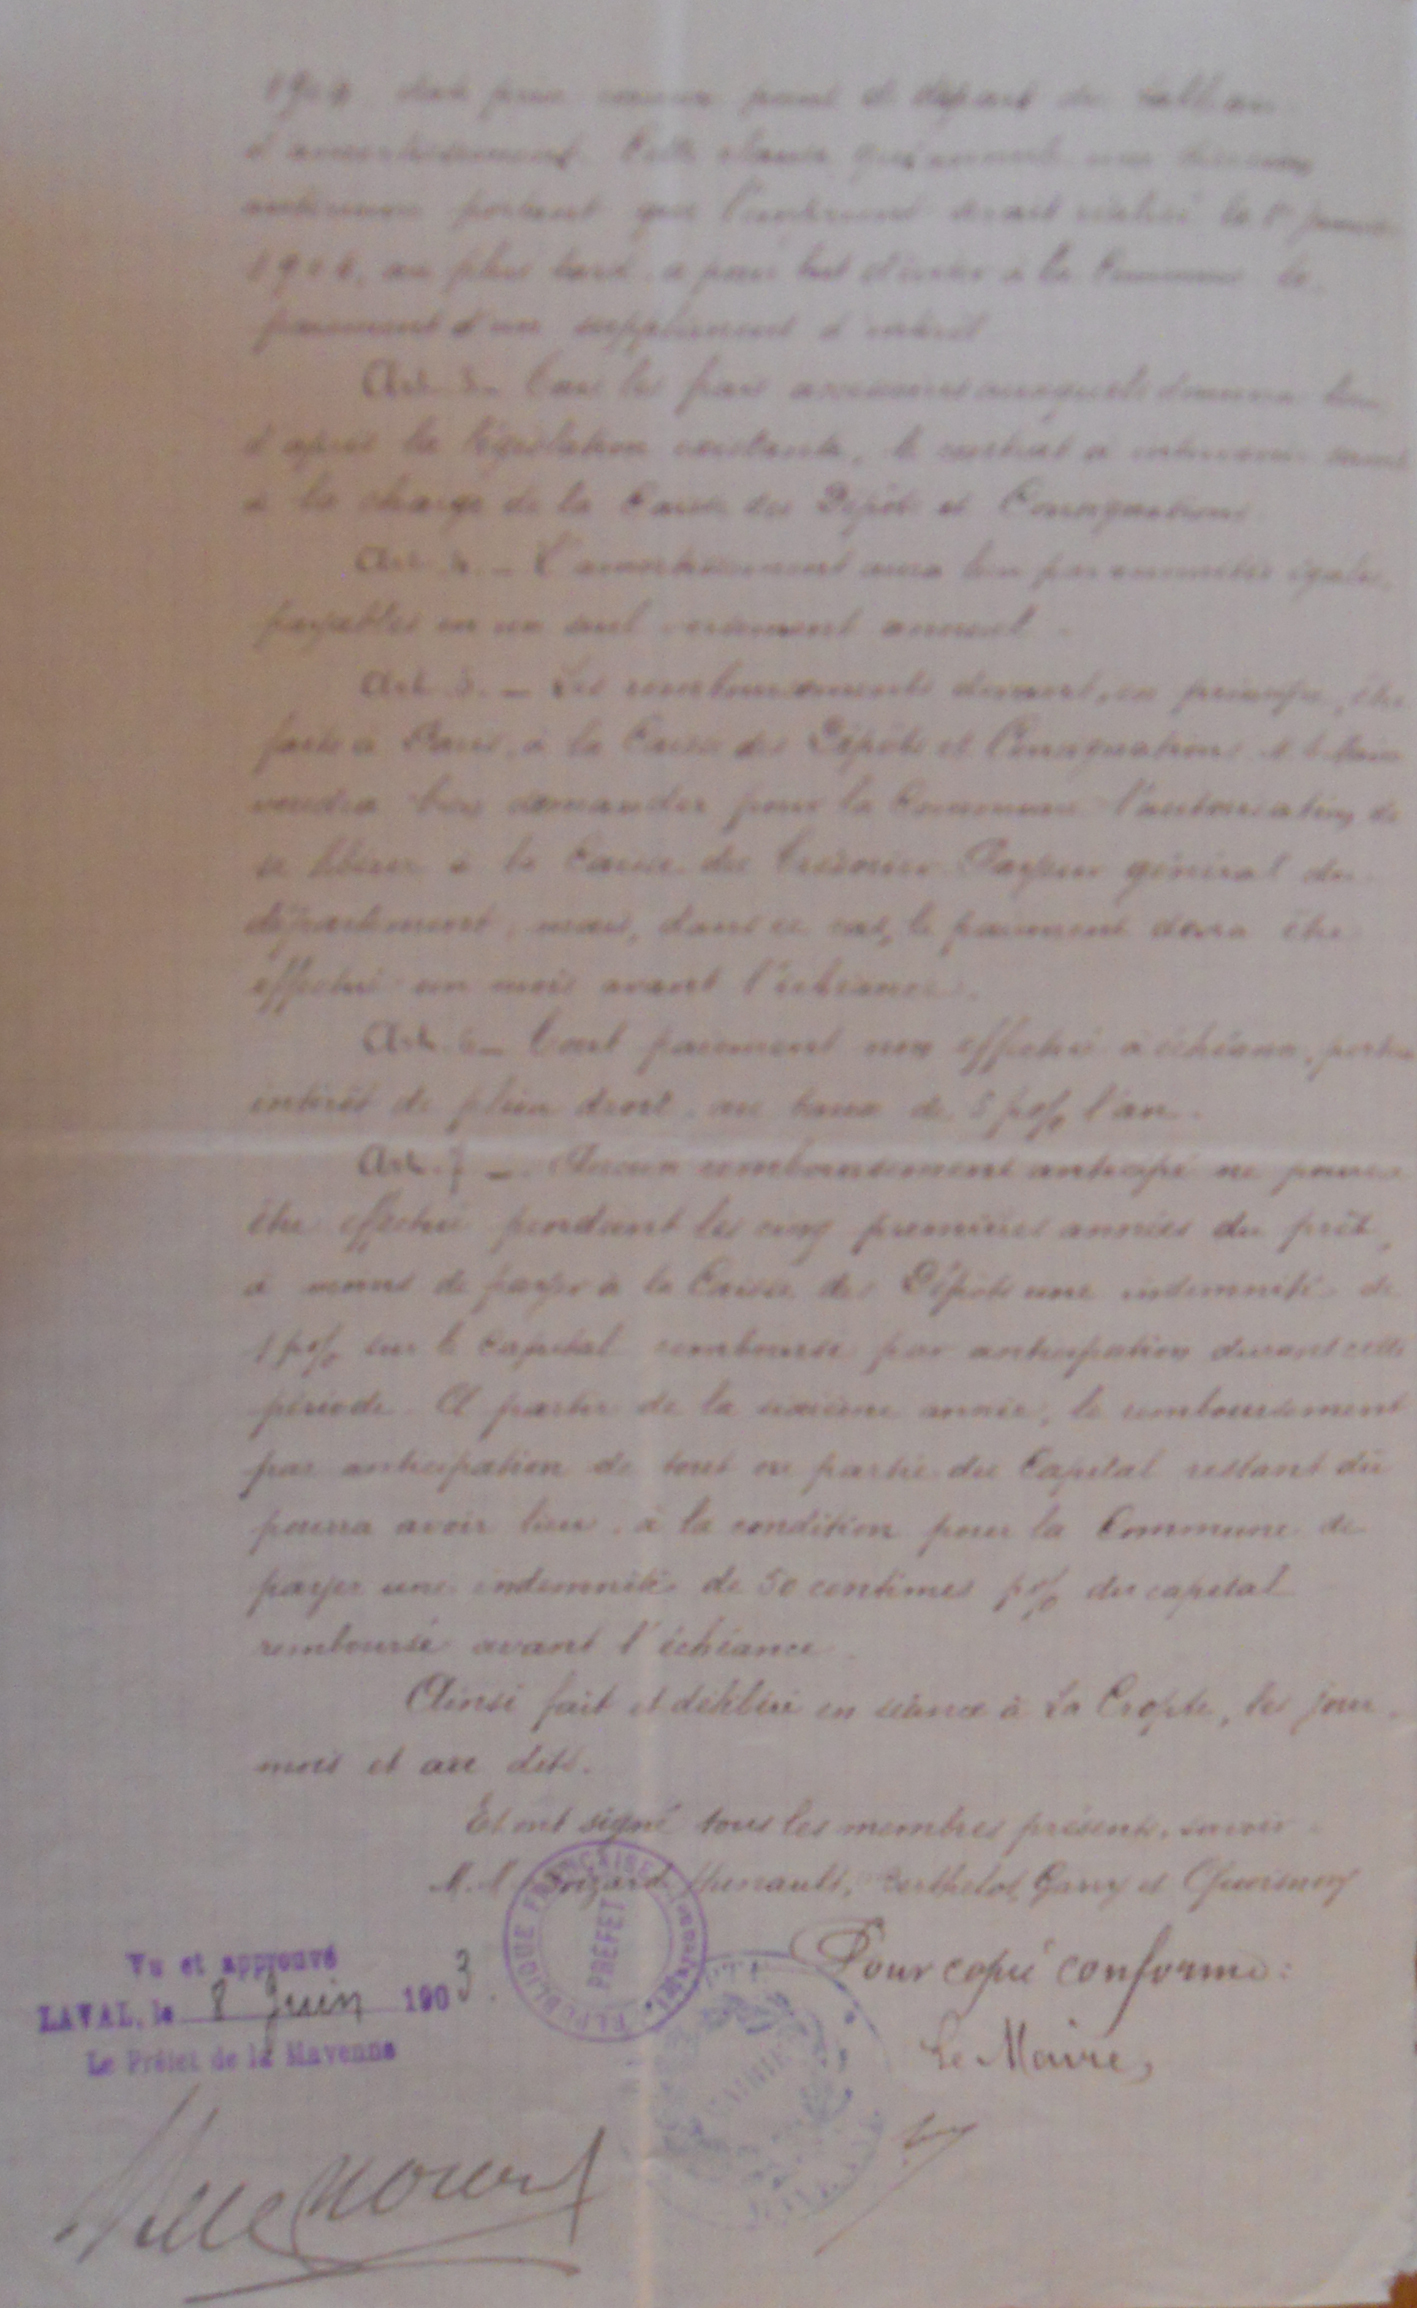 1904 soit pris comme point de départ du tableau
d'amortissement. Cette clause, qui annule une décision
antérieure portant que l'emprunt serait réalisé le 1er janvier
1904, au plus tard, a pour but d'éviter à la Commune le
paiement d'un supplément d'intérêt
Art. 3. _ Tous les frais accessoires auxquels donnera lieu
d'après la législation existante, le contrat à intervenir seront
à la charge de la Caisse des Dépôts et Consignations
Art. 4. _ L'amortissement aura lieu par annuités égales,
payables en un seul versement annuel.
Art. 5. _ Les remboursements devant, en principe, être
faits à Paris, à la Caisse des Dépôts et Consignations, M. le Maire
voudra bien demander pour la Commune l'autorisation de
se libérer à la Caisse du Trésorier Payeur général du
département, mais, dans ce cas, le paiement devra être
effectué un mois avant l'échéance.
Art. 6 _ Tout paiement non effectué à échéance, portera
intérêt de plein droit, au taux de 5 p% l'an.
Art. 7 _ Aucun remboursement anticipé ne pourra
être effectué pendant les cinq premières années du prêt,
à moins de payer à la Caisse des Dépôts une indemnité de
1 p% sur le Capital remboursé par anticipation durant cette
période. A partir de la sixième année, le remboursement
par anticipation de tout ou partie du Capital restant dû
pourra avoir lieu, à la condition pour la Commune de
payer une indemnité de 50 centimes p% du capital
remboursé avant l'échéance.
Ainsi fait et délibéré en séance à La Cropte, les jour,
mois et an dits.
Et ont signé tous les membres présents, savoir:
M.M. Berthelot, Garry et
RÉPUBLIQUE FRANÇAISE
PRÉFET
Vu et approuvé
LAVAL, le 8 Juin 1903.
Le Préfet de la Mayenne
Pour copie conforme:
Le Maire,
MAIRIE